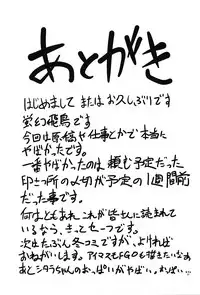 あとがき
はじめまして または お久しぶりです
蛍幻飛鳥です
今回は原稿や仕事とかで本当に
やばかったです。
一番やばかったのは 頼む予定だった
印さつ所の〆切が予定の1週間前
だった事です。
何はともあれ これが皆さんに読まれて
いるなら、きってセーフです。
次はたぶん冬コミですが、よければ
おねがいします。アイマスもFGOも描きたいなぁ
あとシタラちゃんのおっぱいがやばい。